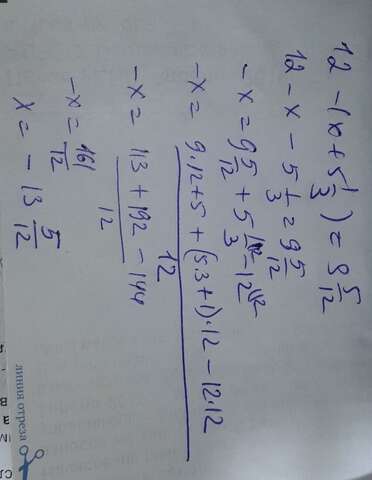 12 - (x + 5 1/3) = 9 5/12
12 - x - 5 1/3 = 9 5/12
- x = 9 5/12 + 5 1/3 - 12
- x = (9·12+5 + (5·3+1)·12 - 12·12)/12
- x = (113 + 192 - 144)/12
- x = 161/12
x = - 13 5/12
линия отреза